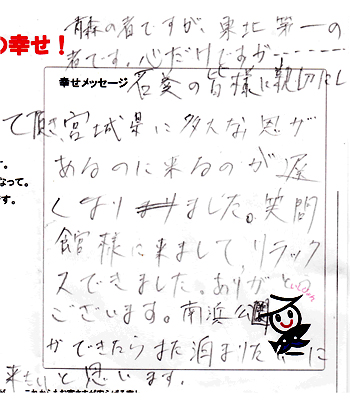 青森の者ですが、東北第一の
の幸せ！
者です。心だけですが-------
幸せメッセージ
石巻の皆様に親切にし
て頂き宮城県に多大な恩が
す。
あるのに来るのが遅
なって。
くなりました。笑問
です。
館様に来まして、リラック
スできました。ありがとう
ございます。南浜公園
ができたらまた泊まりに
来たいと思います。